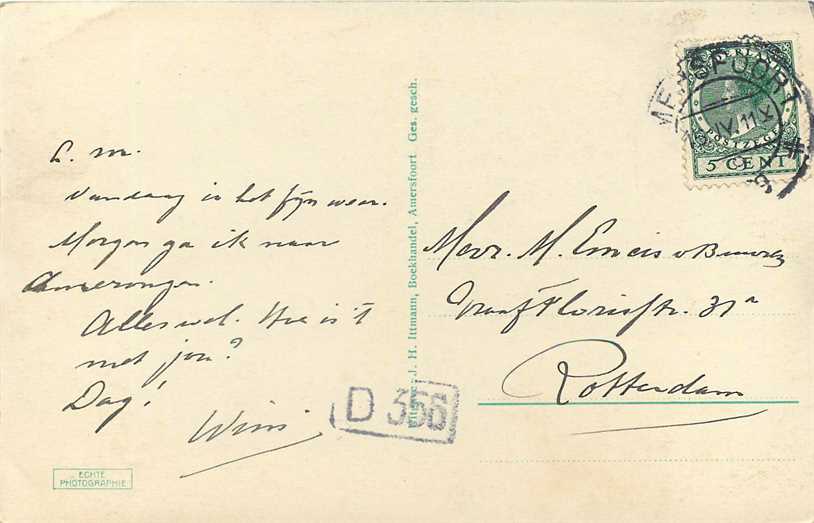 L. M.
Vandaag is het fijn weer.
Morgen ga ik naar
Amerongen.
Alles wel. Hoe is 't
met jou?
Dag!
Wim
ECHTE
PHOTOGRAPHIE
Uitgave J. H. Ittmann, Boekhandel, Amersfoort Ges. gesch.
D 356
NEDERLAND
POSTZEGEL
5 CENT
AMERSFOORT
IV. 11
Mevr. M.
Graaf Florisstr. 31a
Rotterdam